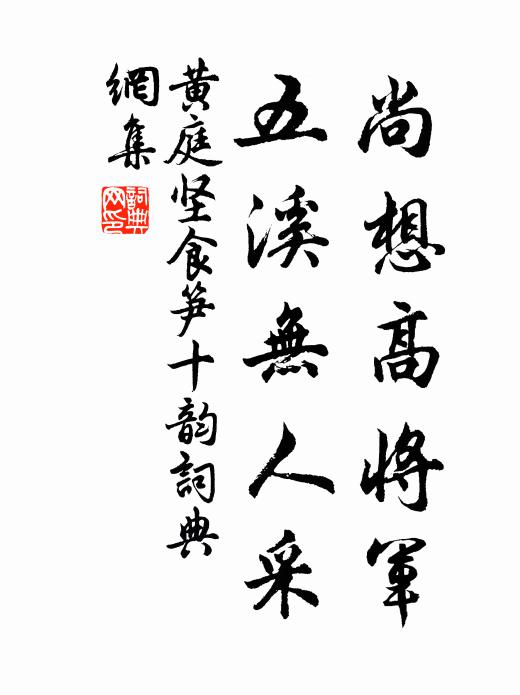 尚想高將軍
五溪無人采
黄庭坚食笋十韵詞典
網集
詞典網印